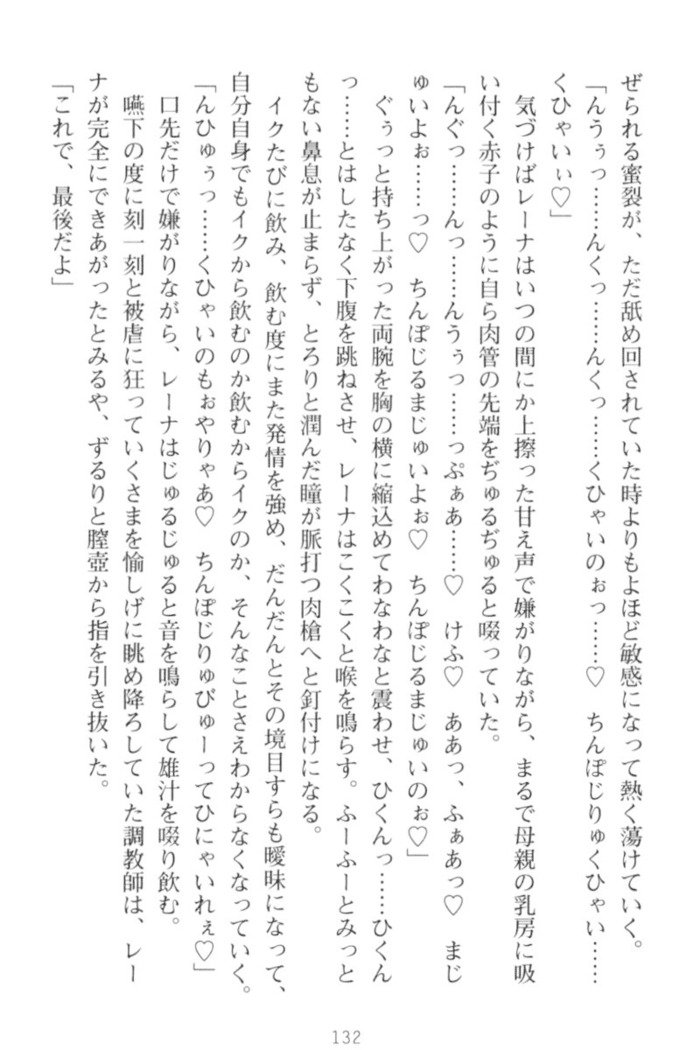 ぜられる蜜裂が、ただ舐め回されていた時よりもよほど敏感になって熱く蕩けていく。
「んうぅっ……んくっ……んくっ……くひゃいのぉっ……♡　ちんぽじりゅくひゃい……
くひゃいぃ♡」
　気づけばレーナはいつの間にか上擦った甘え声で嫌がりながら、まるで母親の乳房に吸
い付く赤子のように自ら肉管の先端をぢゅるぢゅると啜っていた。
「んぐっ……んっ……んうぅっ……っぷぁあ……♡　けふ♡　ああっ、ふぁあっ♡　まじ
ゅいよぉ……っ♡　ちんぽじるまじゅいよぉ♡　ちんぽじるまじゅいのぉ♡」
　ぐぅっと持ち上がった両腕を胸の横に縮込めてわなわなと震わせ、ひくんっ……ひくん
っ……とはしたなく下腹を跳ねさせ、レーナはこくこくと喉を鳴らす。ふーふーとみっと
もない鼻息が止まらず、とろりと潤んだ瞳が脈打つ肉槍へと釘付けになる。
　イクたびに飲み、飲む度にまた発情を強め、だんだんとその境目すらも曖昧になって、
自分自身でもイクから飲むのか飲むからイクのか、そんなことさえわからなくなっていく。
「んひゅぅっ……くひゃいのもぉやりゃあ♡　ちんぽじりゅびゅーってひにゃいれぇ♡」
　口先だけで嫌がりながら、レーナはじゅるじゅると音を鳴らして雄汁を啜り飲む。
　嚥下の度に刻一刻と被虐に狂っていくさまを愉しげに眺め降ろしていた調教師は、レー
ナが完全にできあがったとみるや、ずるりと膣壺から指を引き抜いた。
「これで、最後だよ」
132